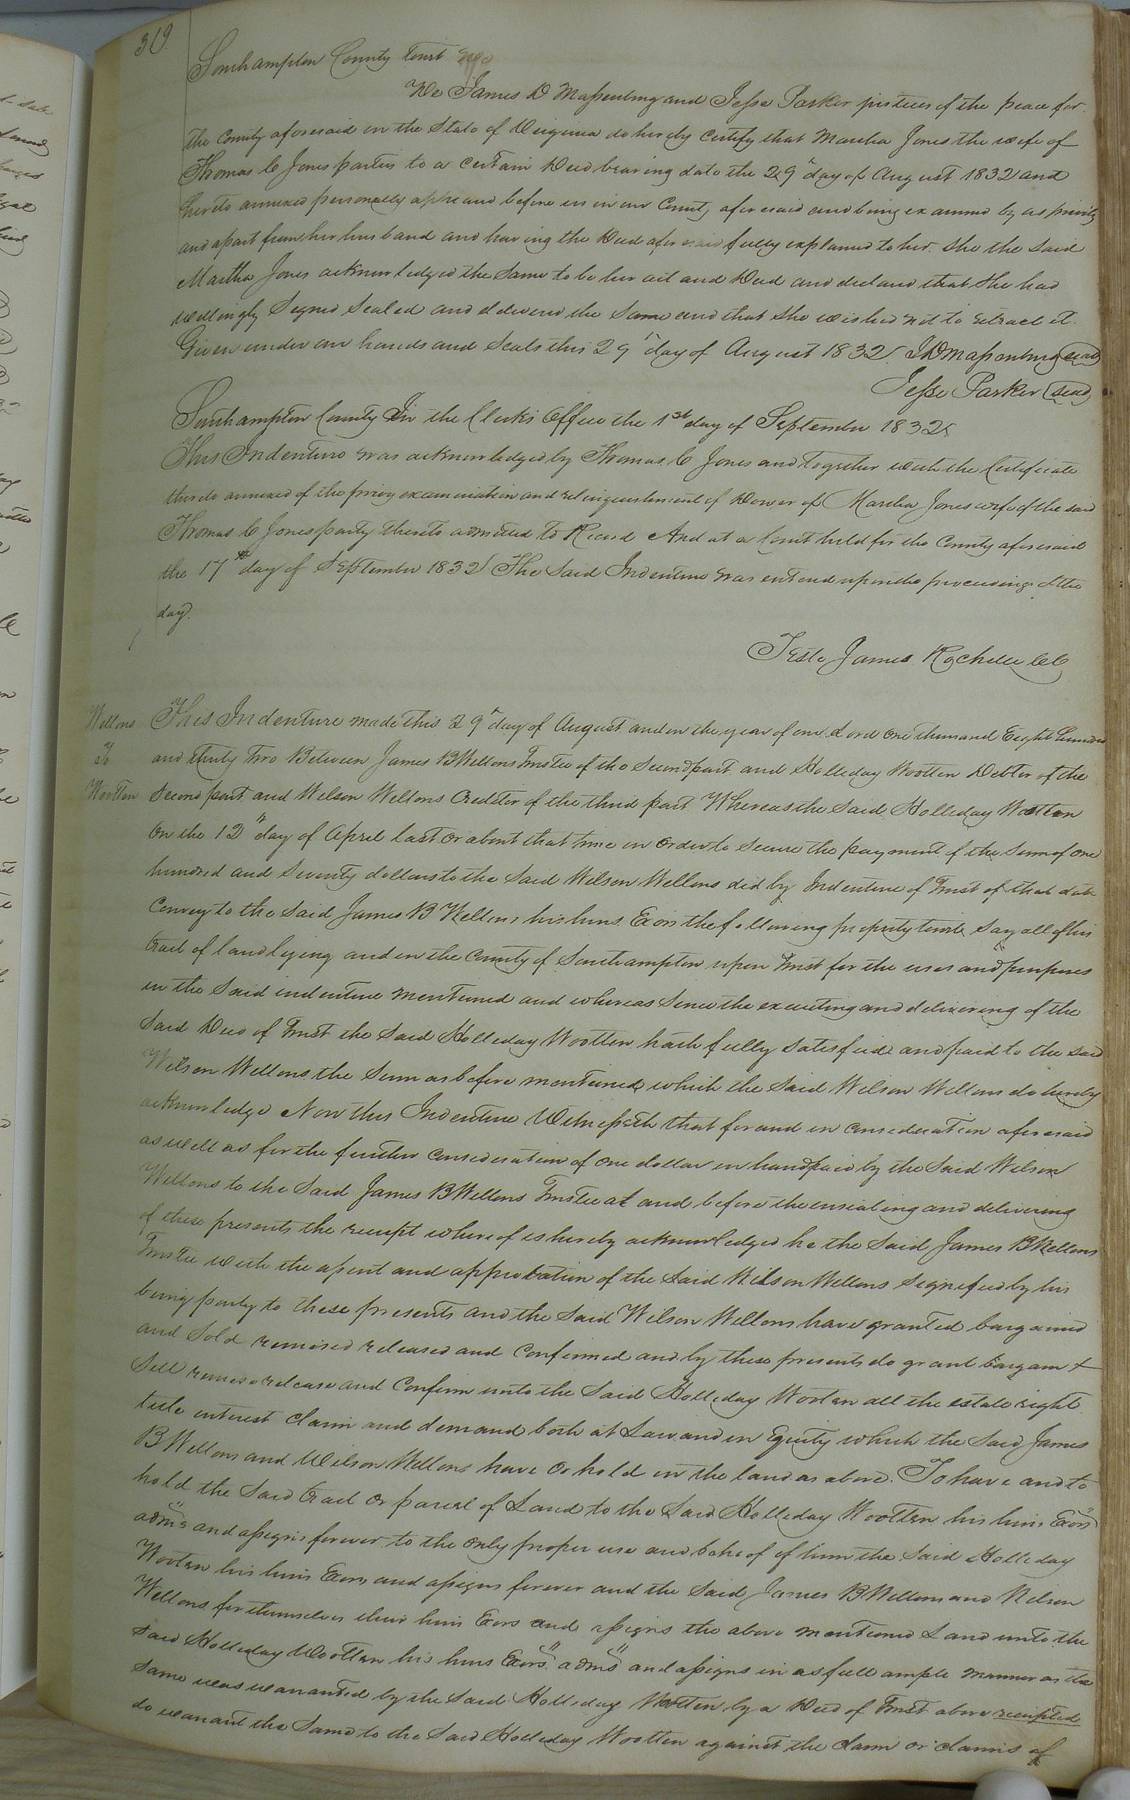 319
Southampton County Court
We James D Massenburg and Jesse Parker justices of the peace for
the County aforesaid in the State of Virginia do hereby Certify that Martha Jones the wife of
Thomas C Jones parties to a certain Deed bearing date the 29th day of August 1832 and
hereto annexed personally appeared before us in our County aforesaid and being examined by us privily
and apart from her husband and having the Deed aforesaid fully explained to her She the said
Martha Jones acknowledged the Same to be her act and Deed and declared that She had
willingly Signed Sealed and delivered the Same and that She wished not to retract it.
Given under our hands and Seals this 29th day of August 1832 J D Massenburg seal
Jesse Parker seal
Southampton County In the Clerks Office the 1st day of September 1832
This Indenture was acknowledged by Thomas C Jones and together with the Certificate
thereto annexed of the privy examination and relinquishment of Dower of Martha Jones wife of the said
Thomas C Jones party thereto admitted to Record And at a Court held for the County aforesaid
the 17th day of September 1832 The Said Indenture was entered upon the proceedings of the
day.
Teste James Rochelle CC
Wellons
To
Wootten
This Indenture made this 29th day of August and in the year of our Lord One thousand Eight hundred
and thirty two Between James B Wellons Trustee of the Second part and Holleday Wootten Debtor of the
Second part and Wilson Wellons Creditor of the third part Whereas the Said Holleday Wootten
On the 12th day of April last or about that time in order to Secure the payment of the Sum of one
hundred and Seventy dollars to the Said Wilson Wellons did by Indenture of Trust of that date
Convey to the Said James B Wellons his heirs Exors the following property to wit Say all of his
tract of land lying and in the County of Southampton upon Trust for the uses and purposes
in the Said indenture mentioned and whereas Since the executing and delivering of the
Said Deed of Trust the Said Holleday Wootten hath fully Satisfied and paid to the said
Wilson Wellons the Sum as before mentioned which the Said Wilson Wellons do hereby
acknowledge Now this Indenture Witnesseth that for and in consideration aforesaid
as well as for the further consideration of one dollar in hand paid by the Said Wilson
Wellons to the Said James B Wellons Trustee at and before the ensealing and delivering
of these presents the receipt whereof is hereby acknowledged he the Said James B Wellons
Trustee with the assent and approbation of the Said Wilson Wellons Signefied by his
being party to these presents and the Said Wilson Wellons have granted bargained
and Sold remised released and Confirmed and by these presents do grant Bargain &
Sell remise release and Confirm unto the Said Holleday Wootten all the estate right
title interest claim and demand both at Law and in Equity which the Said James
B Wellons and Wilson Wellons have or hold in the land as above. To have and to
hold the Said tract or parcel of Land to the Said Holleday Wootten his heirs Exors
adms and assigns forever to the only proper use and behoof of him the Said Holleday
Wooten his heirs Exors and assigns forever and the Said James B Wellons and Wilson
Wellons for themselves their heirs Exors and assigns the above mentioned Land unto the
Said Holleday Wootten his heirs Exors adms and assigns in as full ample manner as the
Same was waranted by the Said Holleday Wootten by a Deed of Trust above receipted
do warrant the Same to the Said Holleday Wootten against the claim or claims of